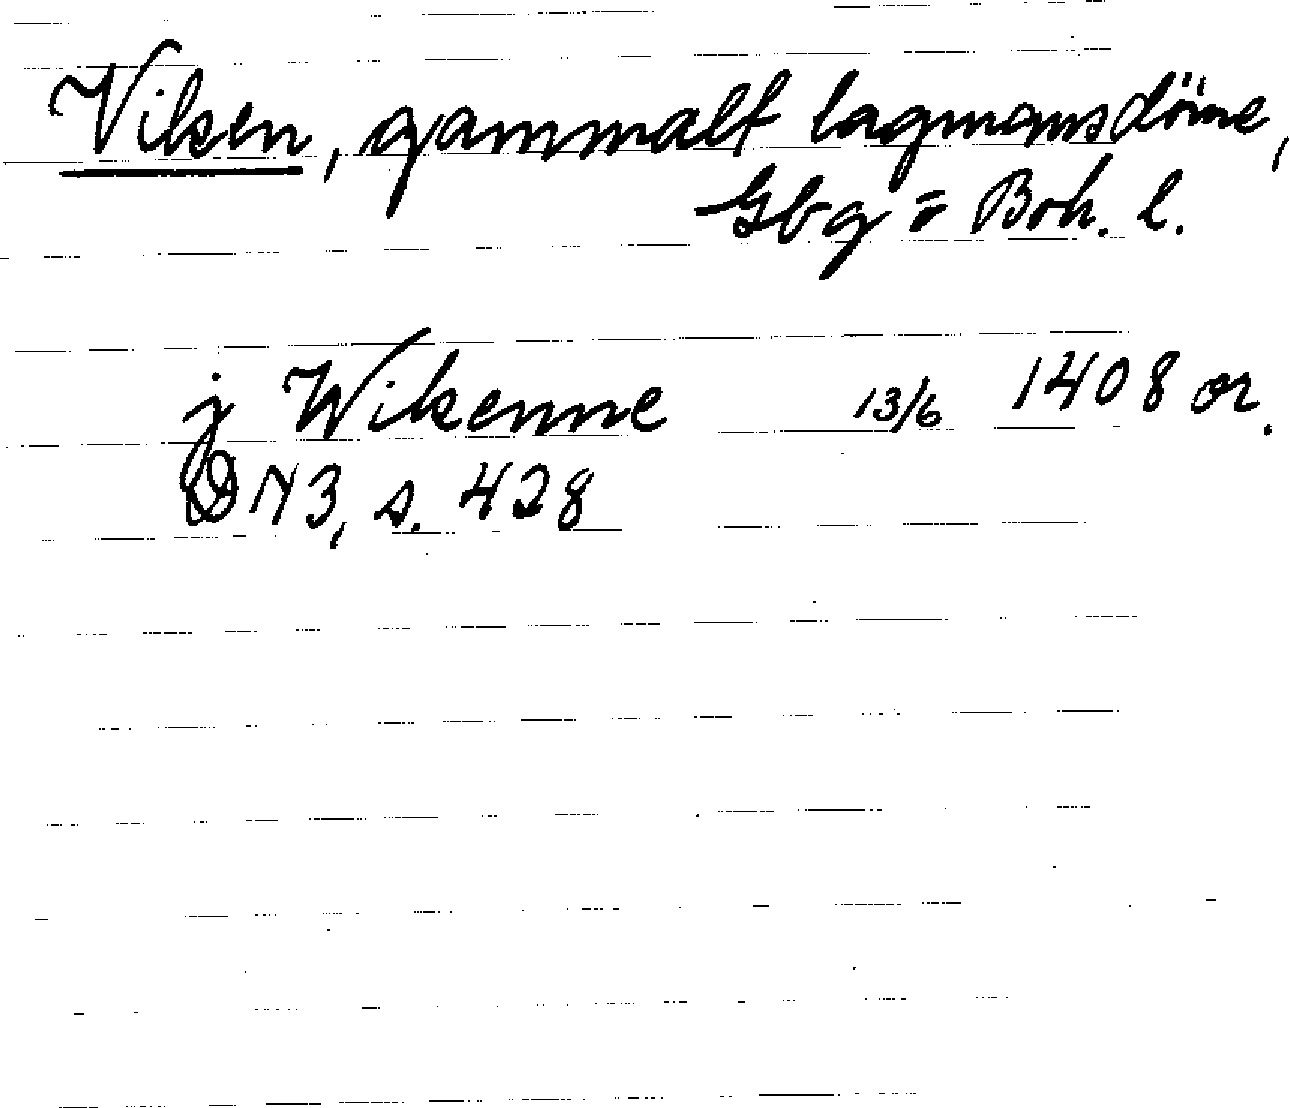 Viken, gammalt lagmansdöme,
Gbg = Boh. l.
j Wikenne 13/6 1408 or.
DN 3, s. 428